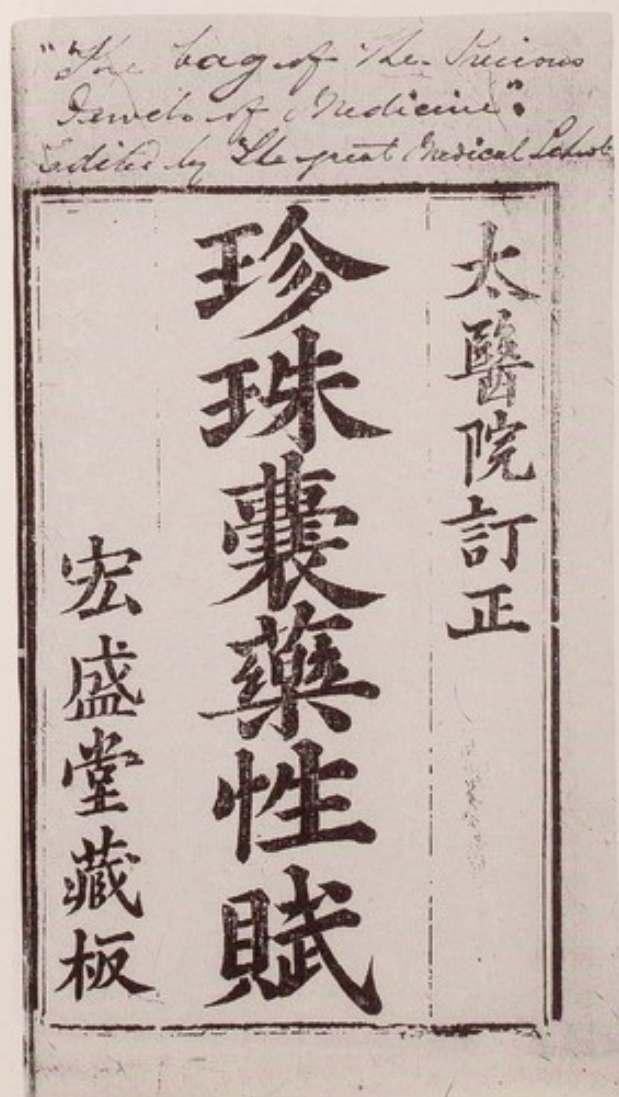 "The bag of The Precious
Jewels of Medicine":
Edited by The great Medical School
太醫院訂正
珍珠囊藥性賦
宏盛堂藏板